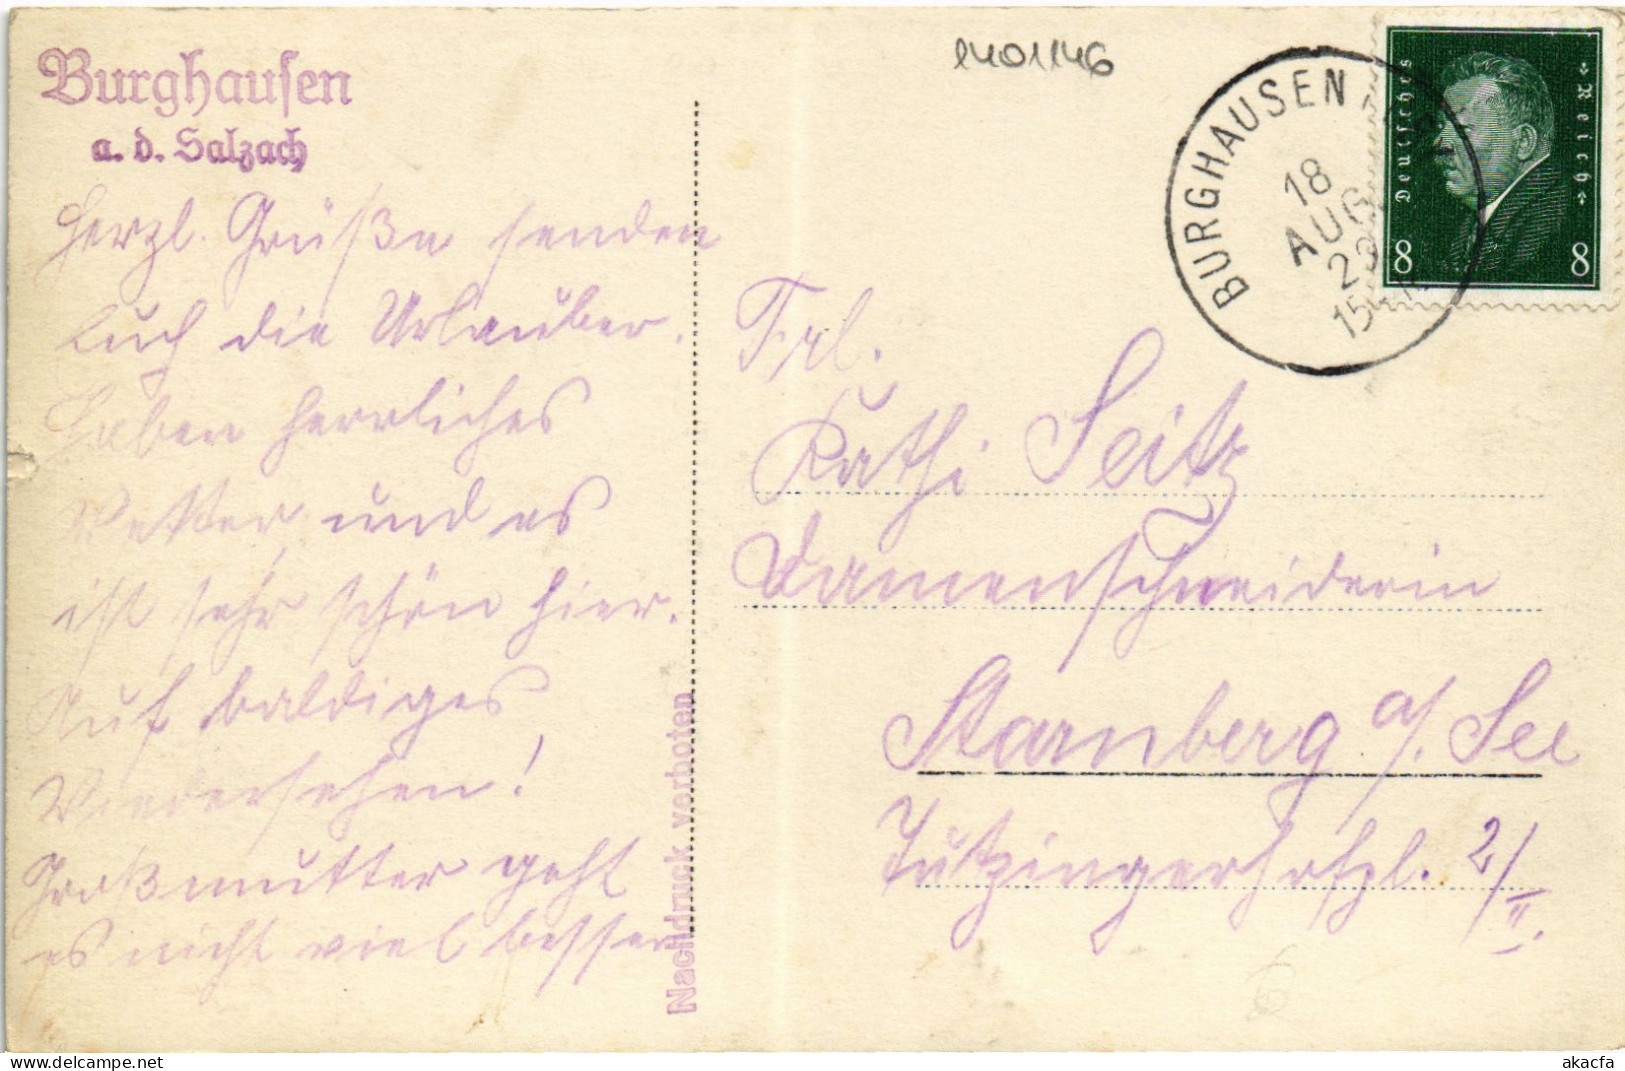 Burghausen
a. d. Salzach
Herzl. Grüße senden
Euch die Urlauber.
Haben herrliches
Wetter, und es
ist sehr schön hier.
Auf baldiges
Wiedersehen!
Großmutter geht
es nicht viel besser
Nachdruck verboten
1401146
BURGHAUSEN
18
AUG
29
15
Deutsches
Reich
8 8
Frl.
Kathi Seitz
Damenschneiderin
Starnberg a/ See
Tutzingerhofpl. 2/II.
akacfa